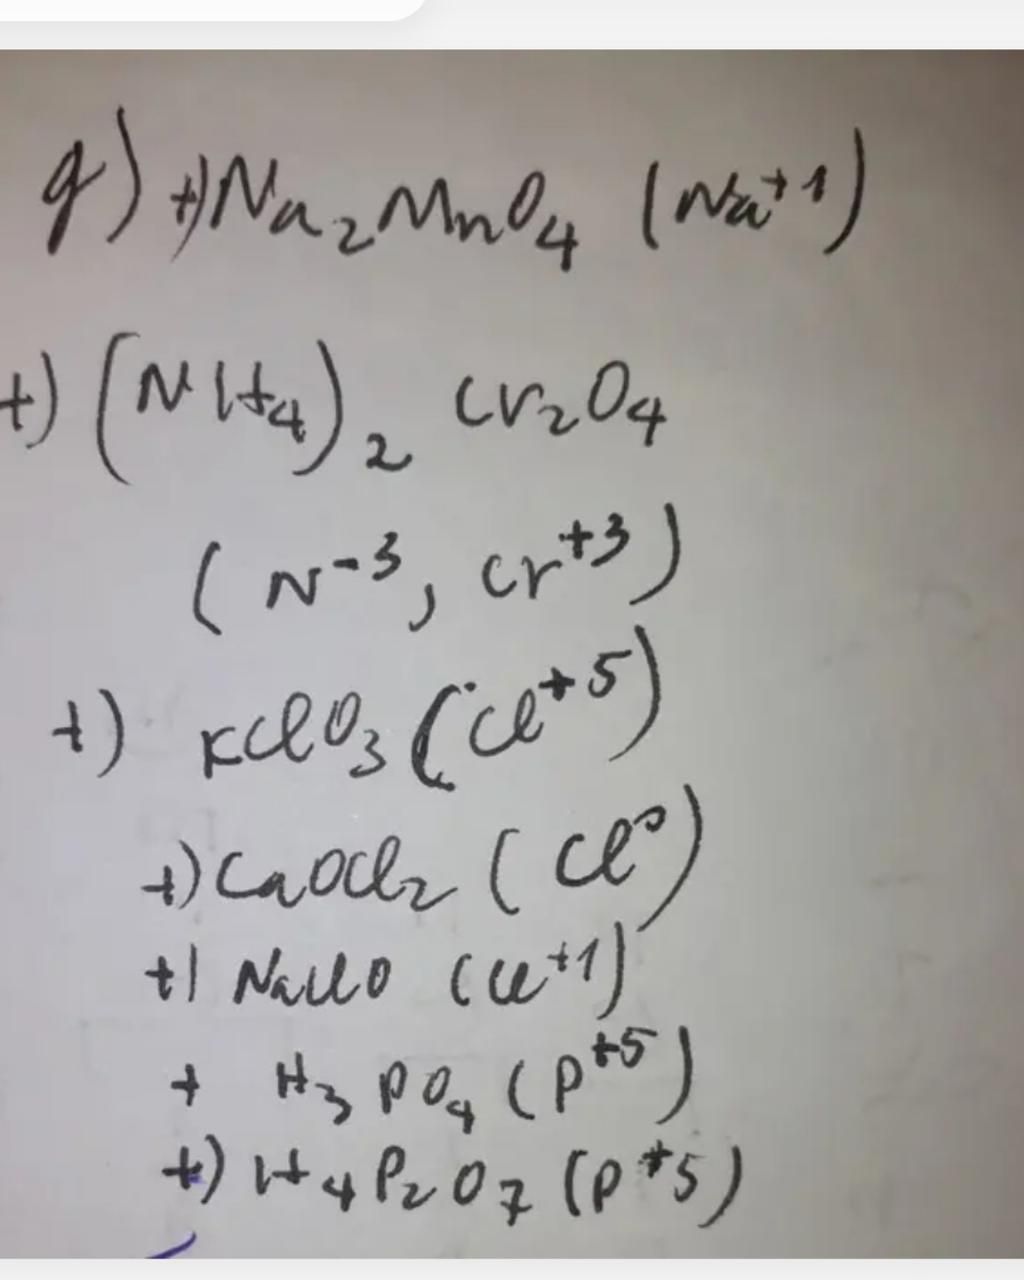 g) +) Na₂MnO₄ (Na⁺¹)
+) (NH₄)₂ Cr₂O₄
(N⁻³, Cr⁺³)
+) KClO₃ (Cl⁺⁵)
+) CaOCl₂ (Cl⁰)
+) NaClO (Cl⁺¹)
+ H₃PO₄ (P⁺⁵)
+) H₄P₂O₇ (P⁺⁵)